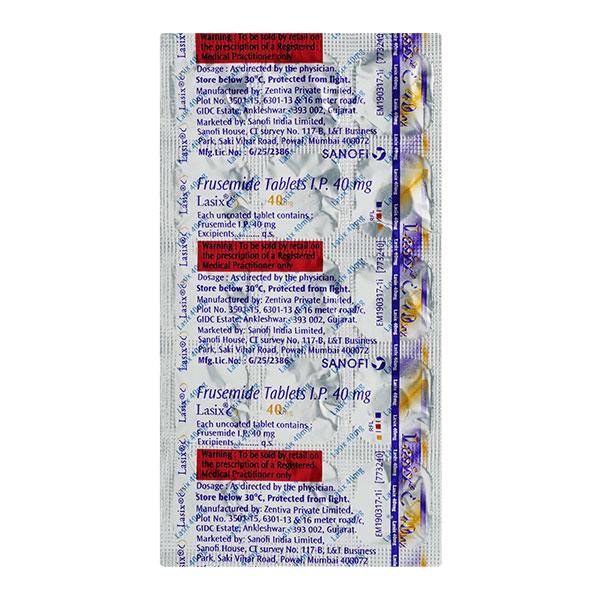 Warning : To be sold by retail on
the prescription of a Registered
Medical Practitioner only
Dosage : As directed by the physician.
Store below 30°C, Protected from light.
Manufactured by: Zentiva Private Limited,
Plot No. 3503-15, 6301-13 & 16 meter road/c,
GIDC Estate, Ankleshwar- 393 002, Gujarat.
Marketed by: Sanofi India Limited,
Sanofi House, CT survey No. 117-B, L&T Business
Park, Saki Vihar Road, Powai, Mumbai 400072
Mfg.Lic.No.: G/25/2386
SANOFI
Frusemide Tablets I.P. 40 mg
Lasix® 40mg
Each uncoated tablet contains :
Frusemide I.P. 40 mg
Excipients......... q.s.
Warning : To be sold by retail on
the prescription of a Registered
Medical Practitioner only
Dosage : As directed by the physician.
Store below 30°C, Protected from light.
Manufactured by: Zentiva Private Limited,
Plot No. 3503-15, 6301-13 & 16 meter road/c,
GIDC Estate, Ankleshwar- 393 002, Gujarat.
Marketed by: Sanofi India Limited,
Sanofi House, CT survey No. 117-B, L&T Business
Park, Saki Vihar Road, Powai, Mumbai 400072
Mfg.Lic.No. : G/25/2386
SANOFI
Frusemide Tablets I.P. 40 mg
Lasix® 40
Each uncoated tablet contains :
Frusemide I.P. 40 mg
Excipients......... q.s.
Warning : To be sold by retail on
the prescription of a Registered
Medical Practitioner only
Dosage : As directed by the physician.
Store below 30°C, Protected from light.
Manufactured by: Zentiva Private Limited,
Plot No. 3503-15, 6301-13 & 16 meter road/c,
GIDC Estate, Ankleshwar- 393 002, Gujarat.
Marketed by: Sanofi India Limited,
Sanofi House, CT survey No. 117-B, L&T Business
Park, Saki Vihar Road, Powai, Mumbai 400072
EM190317-1i [773240]
RFL
EM190317-1i [773240]
RFL
EM190317-1i [773240]
Lasix®
Lasix 40mg